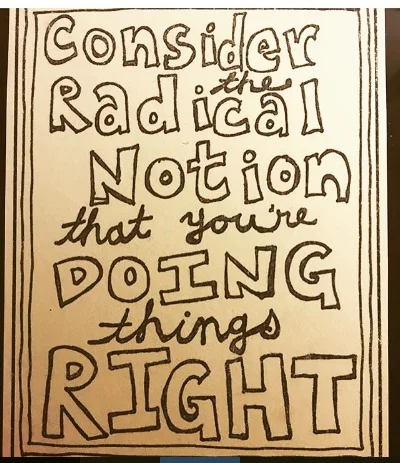 Consider
the
Radical
Notion
that you're
DOING
things
RIGHT